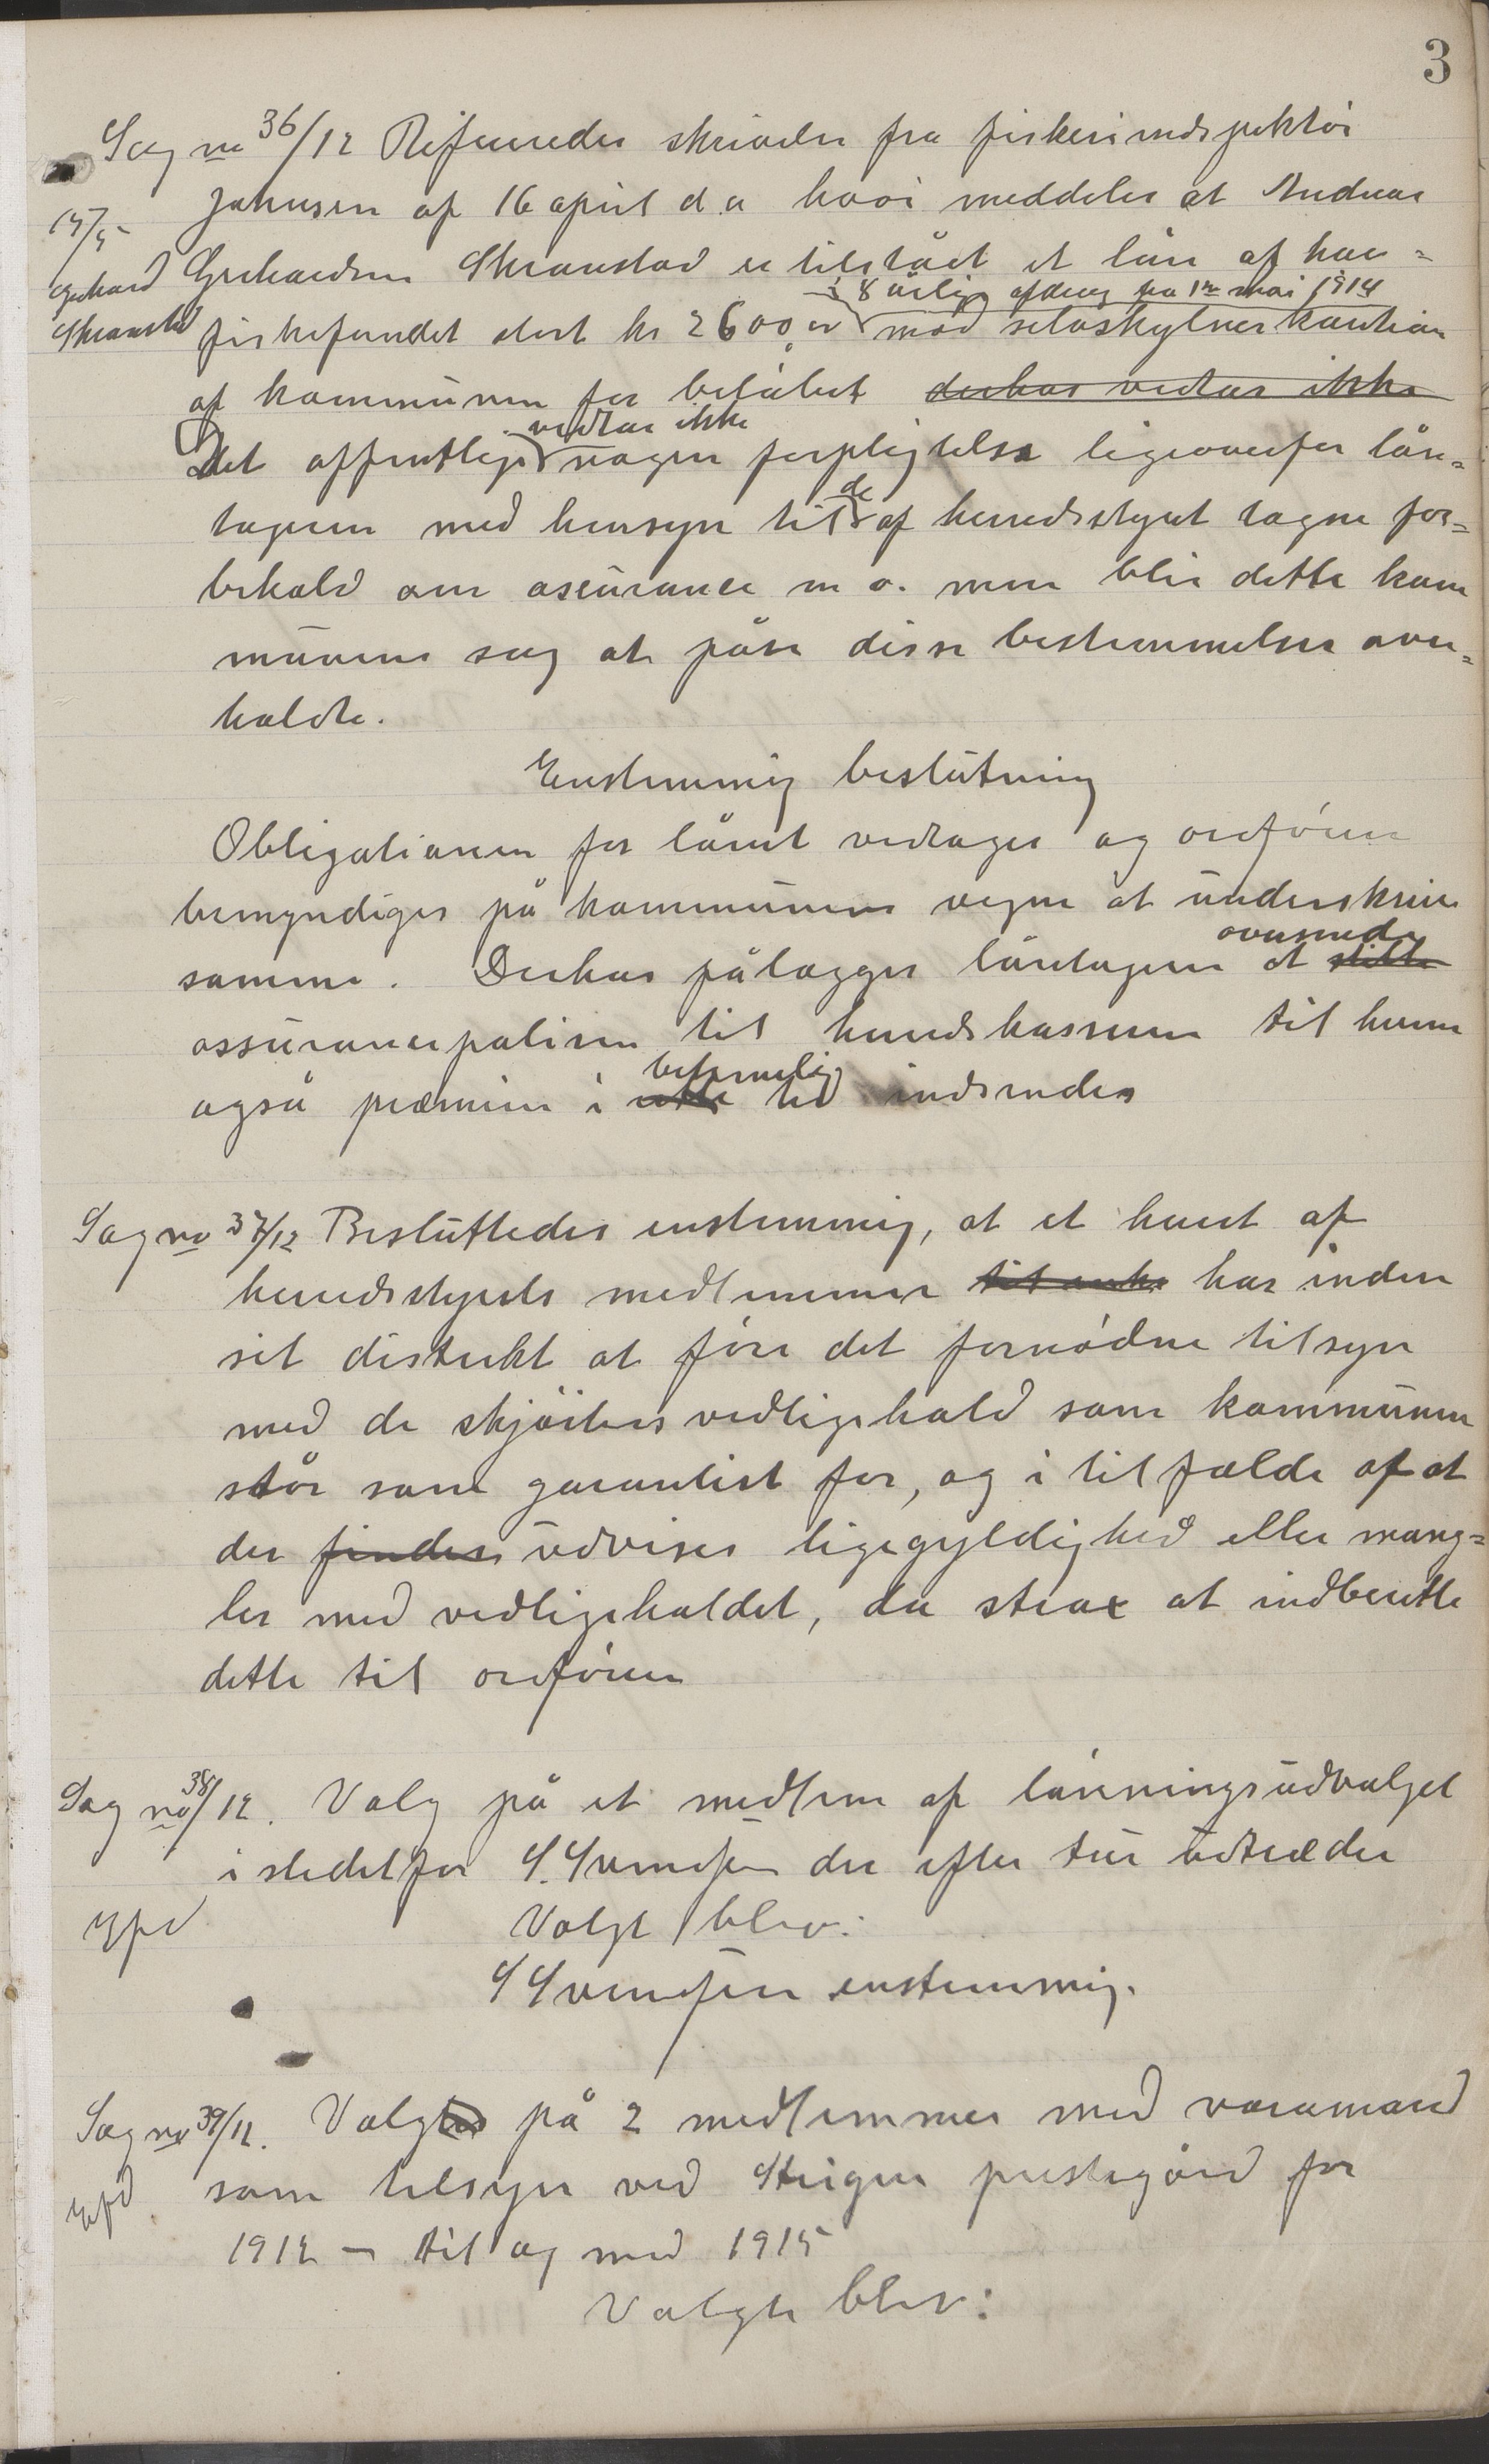 3
Sag no 36/12 Refereredes skrivelse fra fiskeriindspektør
Johnsen af 16 april d.a hvori meddeles at Andreas
15/5
Gerhardsen Skranstad er tilstået et lån af hav=
Gerhard
Skranstad
i 8 årlig afdrag fra 1ste mai 1914
fiskefondet stort kr 2600,00 mod selvskylnerkaution
af kommunen for beløbet derhos vedtar ikke
vedtar ikke
Det offentlige nogen forpligtelse ligeoverfor lån=
de
tageren med hensyn til af herredsstyret tagne for=
behold om assurance m.v. men blir dette kom
munens sag at påse disse bestemmelser over=
holdte.
Enstemmig beslutning
Obligationen for lånet vedtages og ordføren
bemyndiges på kommunens vegne at underskrive
oversende
samme. Derhos pålægges låntageren at stille
assurancepolisen til herredskassereren til hvem
betimelig
også præmien i rette tid indsendes
Sag no 37/12 Besluttedes enstemmig, at et hvert af
herredsstyrets medlemmer har inden
sit distrikt at føre det fornødne tilsyn
med de skjøiters vedligehold som kommunen
står som garantist for, og i tilfælde af at
der findes udvises ligegyldighed eller mang=
ler med vedligeholdet, da strax at indberette
dette til ordføren
Sag no 38/12. Valg på et medlem af låningsudvalget
i stedet for S. Svendsen der efter tur udtræder
Exp
Valgt blev:
S Svendsen enstemmig.
Sag no 39/12. Valg på 2 medlemmer med varamænd
Exp
som tilsyn ved Steigen prestegård for
1912 – til og med 1915
Valgte blev: